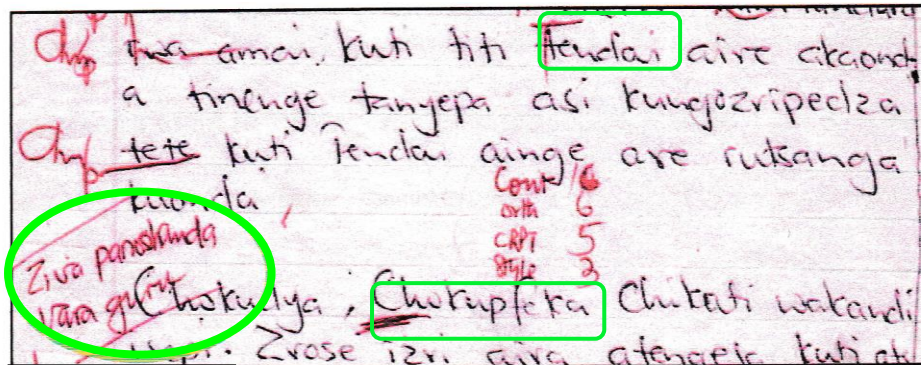 amai, kuti titi Tendai aire akaond
a tinenge tanyepa asi kungozvipedza
tete kuti Tendai ainge are rutsanga
kuonda
Cont
orth 6
CRPT 5
Style 3
Ziva panoshanda
vara guru
Chokudya, Chokupfeka Chikati wakandi
Zvose izvi aiva atengeia kuti